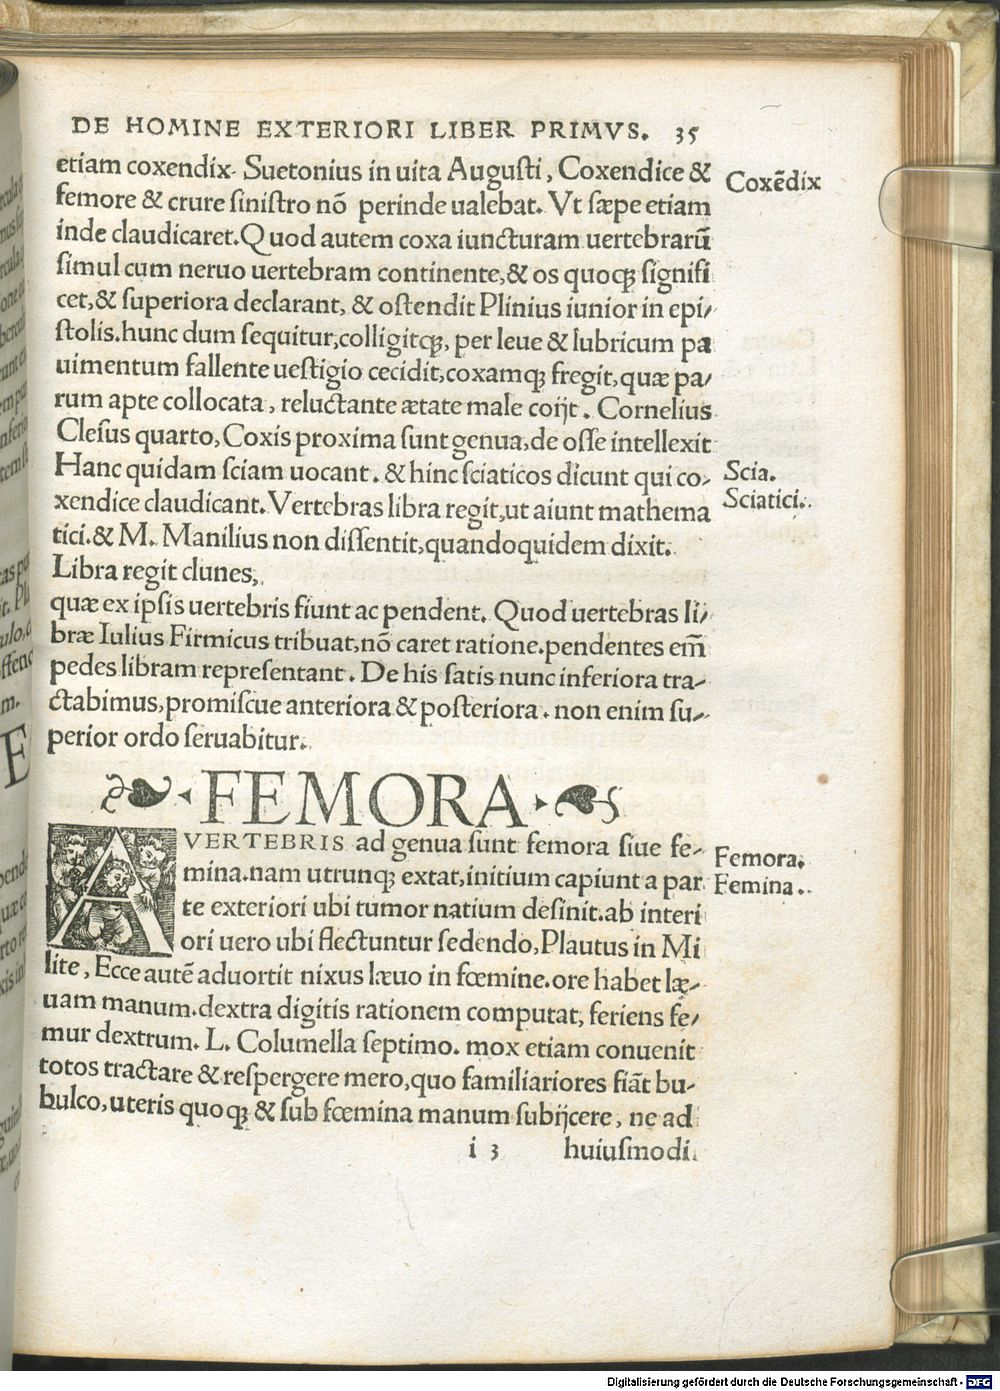 DE HOMINE EXTERIORI LIBER PRIMVS. 35
etiam coxendix. Suetonius in uita Augusti, Coxendice &
Coxēdix
femore & crure sinistro nō perinde ualebat. Vt sæpe etiam
inde claudicaret. Quod autem coxa iuncturam uertebrarū
simul cum neruo uertebram continente, & os quoqꝫ signifi
cet, & superiora declarant, & ostendit Plinius iunior in epi-
stolis. hunc dum sequitur, colligitqꝫ, per leue & lubricum pa
uimentum fallente uestigio cecidit, coxamqꝫ fregit, quæ pa-
rum apte collocata, reluctante ætate male coijt. Cornelius
Clesus quarto, Coxis proxima sunt genua, de osse intellexit
Hanc quidam sciam uocant. & hinc sciaticos dicunt qui co-
Scia.
xendice claudicant. Vertebras libra regit, ut aiunt mathema
Sciatici.
tici. & M. Manilius non dissentit, quandoquidem dixit.
Libra regit clunes,
quæ ex ipsis uertebris fiunt ac pendent. Quod uertebras li-
bræ Iulius Firmicus tribuat, nō caret ratione. pendentes em̄
pedes libram representant. De his satis nunc inferiora tra-
ctabimus, promiscue anteriora & posteriora. non enim su-
perior ordo seruabitur.
FEMORA
A VERTEBRIS ad genua sunt femora siue fe-
Femora.
mina. nam utrunqꝫ extat, initium capiunt a par
Femina.
te exteriori ubi tumor natium desinit. ab interi
ori uero ubi flectuntur sedendo, Plautus in Mi
lite, Ecce autē aduortit nixus læuo in fœmine. ore habet læ-
uam manum. dextra digitis rationem computat, feriens fe-
mur dextrum. L. Columella septimo. mox etiam conuenit
totos tractare & respergere mero, quo familiariores fiāt bu-
bulco, uteris quoqꝫ & sub fœmina manum subijcere, ne ad
i 3 huiusmodi
Digitalisierung gefördert durch die Deutsche Forschungsgemeinschaft - DFG